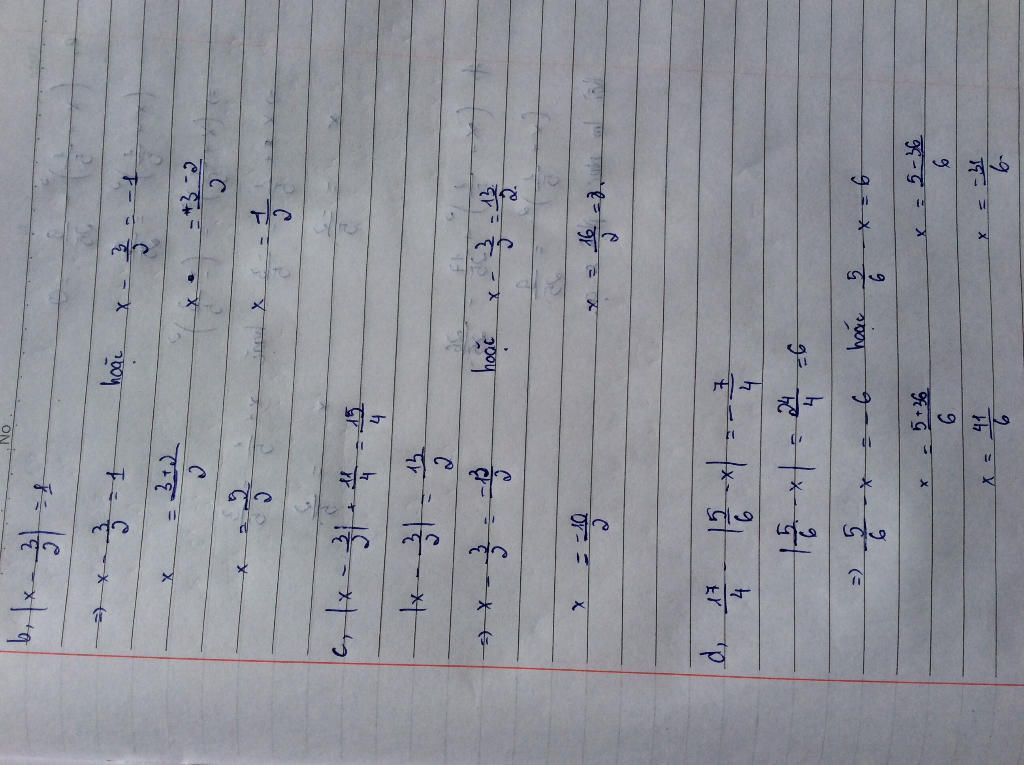 No
b, |x - 3/2| = 1
=> x - 3/2 = 1 hoặc x - 3/2 = -1
x = 3+2/2 x = +3-2/2
x = 5/2 x = 1/2
c, |x - 3/2| + 11/4 = 15/4
|x - 3/2| = 13/2
=> x - 3/2 = -13/2 hoặc x - 3/2 = 13/2
x = -10/2 x = 16/2 = 8
d, 17/4 - |5/6 - x| = -7/4
|5/6 - x| = 24/4 = 6
=> 5/6 - x = -6 hoặc 5/6 - x = 6
x = 5+36/6 x = 5-36/6
x = 41/6 x = -31/6